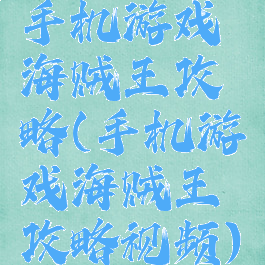 手机游戏
海贼王攻
略(手机游
戏海贼王
攻略视频)